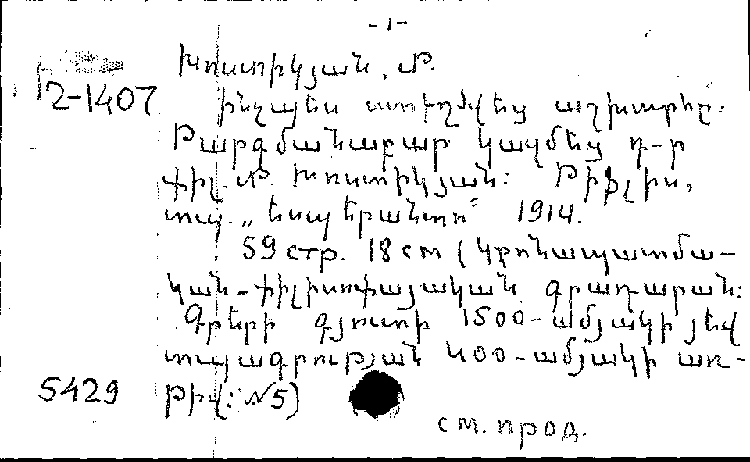 -1-
Խոստիկյան, Մ.
2-1407 Ինչպես ստեղծվեց աշխարհը:
Թարգմանաբար կազմեց դ-ր
ֆիլ. Մ. Խոստիկյան: Թիֆլիս,
տպ. „Էսպերանտո" 1914.
59 стр. 18 см (Կրոնապատմա-
կան-փիլիսոփայական գրադարան:
Գրերի գյուտի 1500-ամյակի յեվ
տպագրության 400-ամյակի առ-
5429 թիվ: №5)
см. прод.